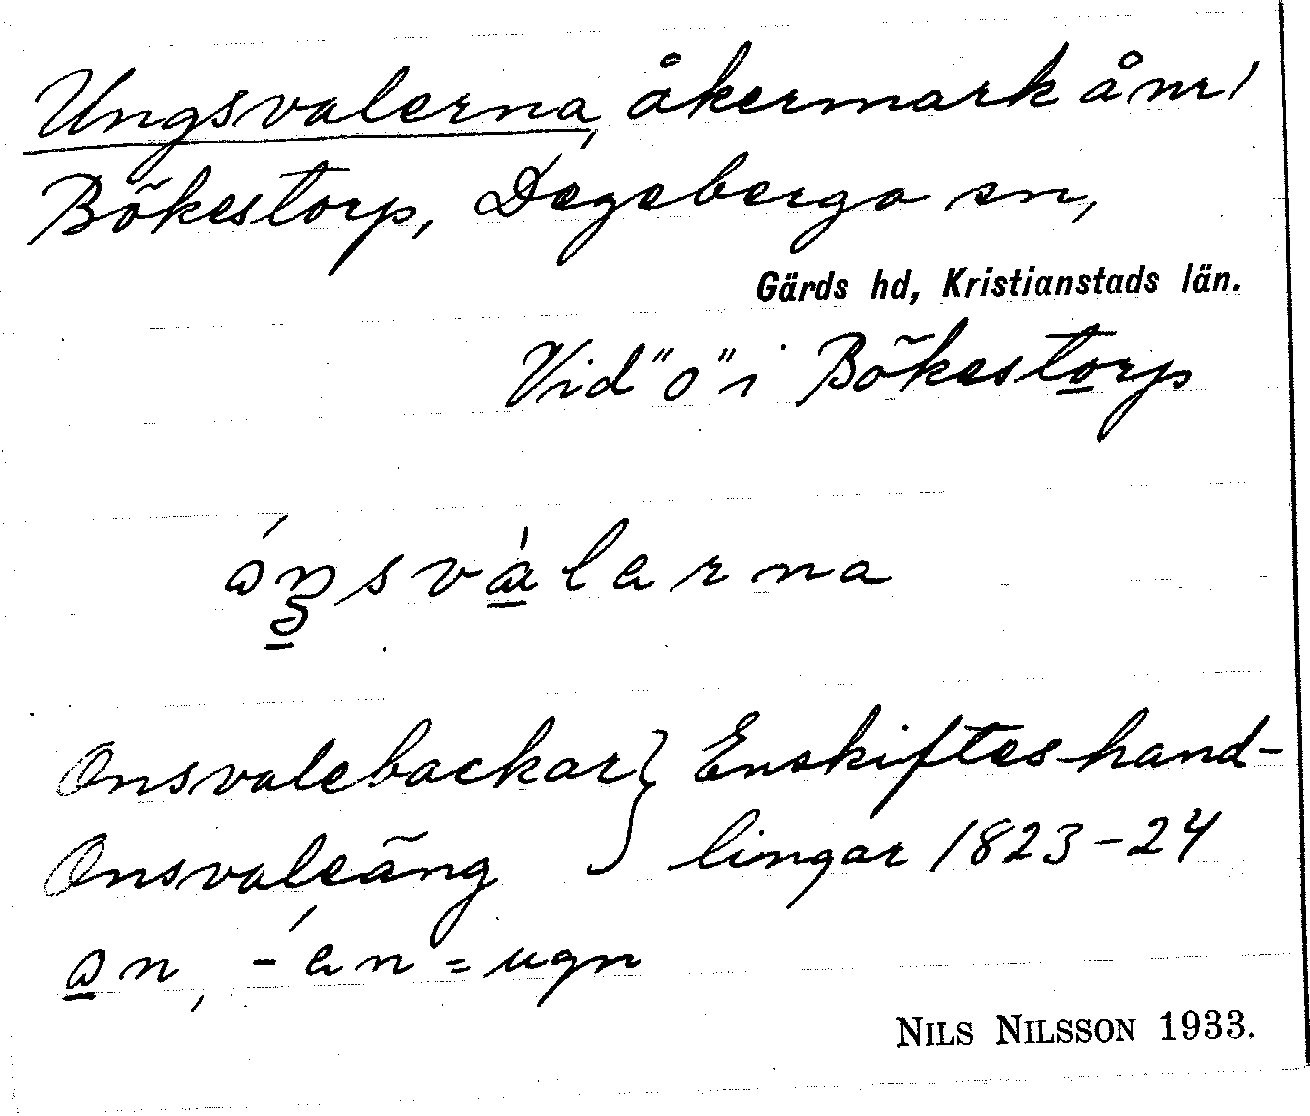 Ungsvalerna, åkermark å nr 1
Bökestorp, Degeberga sn,
Gärds hd, Kristianstads län.
Vid "o" i Bökestorp
ónsvàlerna
Onsvalebackar } Enskifteshand-
Onsvaleäng } lingar 1823-24
on, -en = ugn
NILS NILSSON 1933.